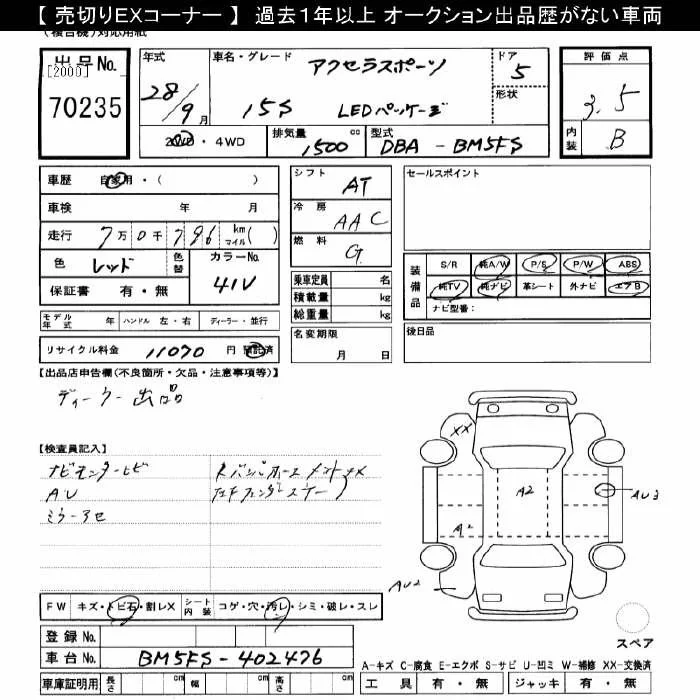 【 売切りEXコーナー 】 過去1年以上 オークション出品歴がない車両
出品No.
[2000]
70235
年式
28/9月
車名・グレード
アクセラスポーツ
15S LEDパッケージ
ドア
5
形状
評価点
3.5
内装
B
2WD・4WD
排気量
1500 cc
型式
DBA - BM5FS
車歴 自家用・( )
車検 年 月
走行 7万0千796 km マイル( )
色 レッド 色替
カラーNo.
41V
保証書 有・無
モデル年式 年 ハンドル 左・右 ディーラー・並行
リサイクル料金 11070 円 預託済
シフト
AT
冷房
AAC
燃料
G
乗車定員 名
積載量 kg
総重量 kg
名変期限
月 日
セールスポイント
装備品
S/R 純A/W P/S P/W ABS
純TV 純ナビ 革シート 外ナビ エアB
ナビ型番:
後日品
【出品店申告欄(不良箇所・欠品・注意事項等)】
ディーラー出品
【検査員記入】
ナビモニターヒビ
AU
ミラーアセ
XX
A2
AU3
A2
AU2
FW キズ・トビ石・割レX シート内装 コゲ・穴・汚レ・シミ・破レ・スレ
登録No.
車台No. BM5FS-402476
車庫証明用 長さ cm 幅 cm 高さ cm
スペア
A-キズ C-腐食 E-エクボ S-サビ U-凹ミ W-補修 XX-交換済
工具 有・無 ジャッキ 有・無